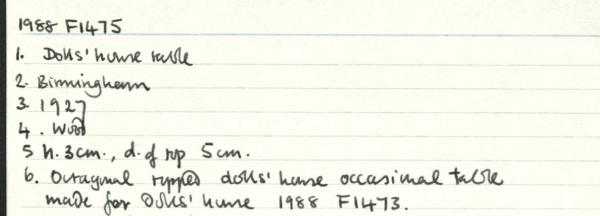 1988 F1475
1. Dolls' house table
2. Birmingham
3. 1927
4. Wood
5 h. 3cm., d. of top 5cm.
6. Octagonal topped dolls' house occasional table
made for Dolls' house 1988 F1473.